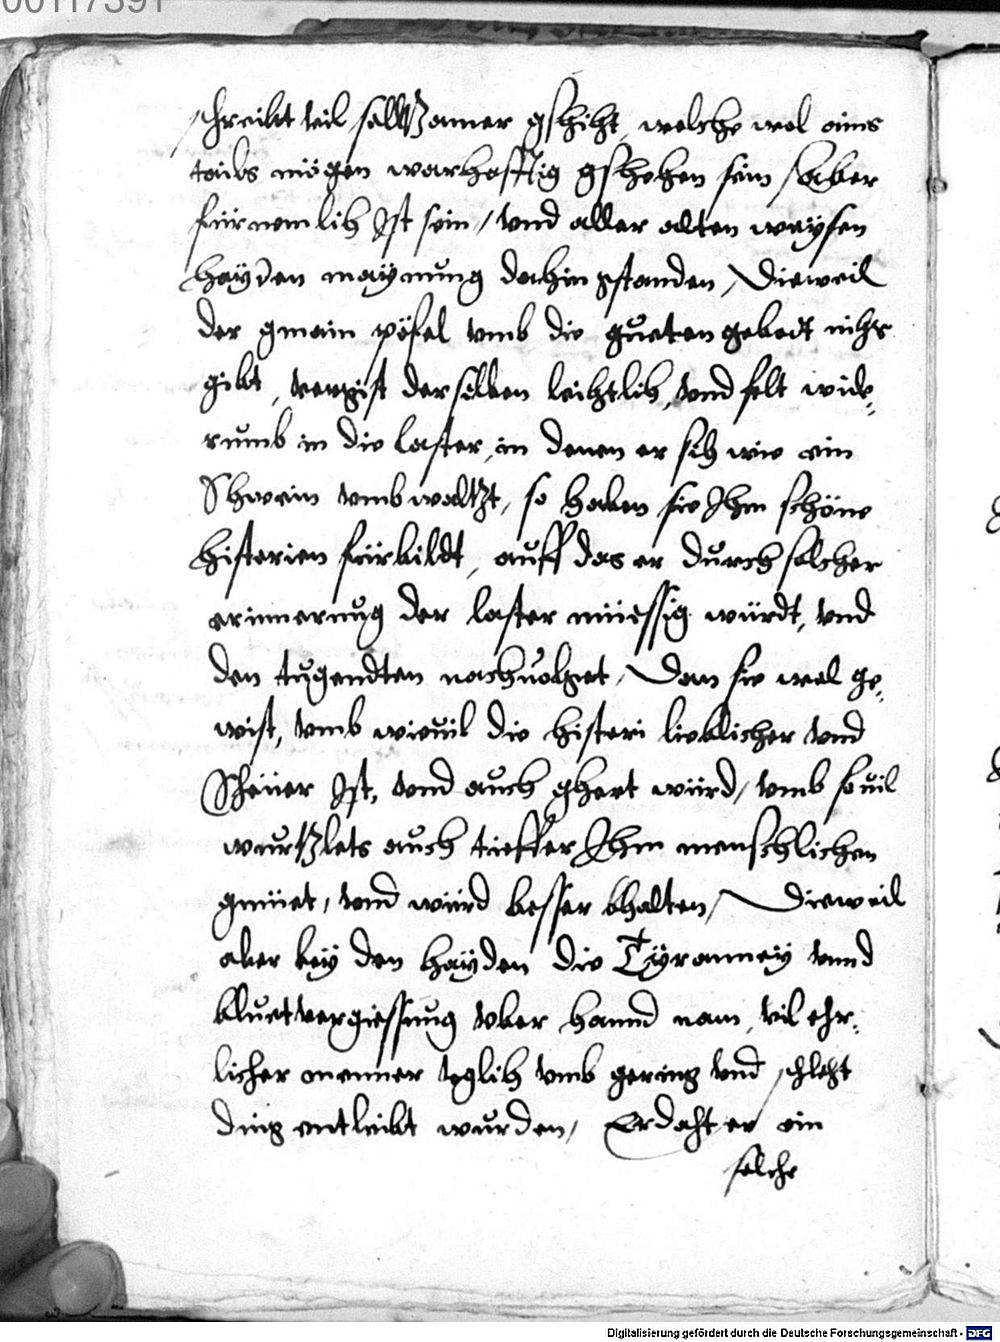 00117391
schreibt vil seltzamer gschiht, welche wol eins
tails mögen warhafftig gschehen sein, aber
fürnemlich Ist sein, vnd aller alten weysen
hayden maynung dahin gstanden, Dieweil
der gmain pöfel vmb die gueten gebodt nihts
gibt, vergist derselben leichtlich, vnd felt wide,
rumb in die laster, in denen er sich wie ein
Schwein vmbwaltzt, so haben sie Ihm schöne
historien fürbildt, auff das er durch solcher
erinnerung der laster müessig würdt, vnd
den tugendten nachuolget, Dan sie wol ge,
wist, vmb wieuil die histori lieblicher vnd
Schöner Ist, vnd auch ghert würd, vmb souil
wurtzlets auch tieffer Ihm menschlichen
gmüet, vnd würd besser bhalten, Dieweil
aber bey den hayden die Tyranney vnnd
bluetvergiessung vber hannd nam, vil ehr,
licher menner teglich vmb gering vnd schleht
ding entleibt wurden, Erdaht er ein
solche
Digitalisierung gefördert durch die Deutsche Forschungsgemeinschaft - DFG